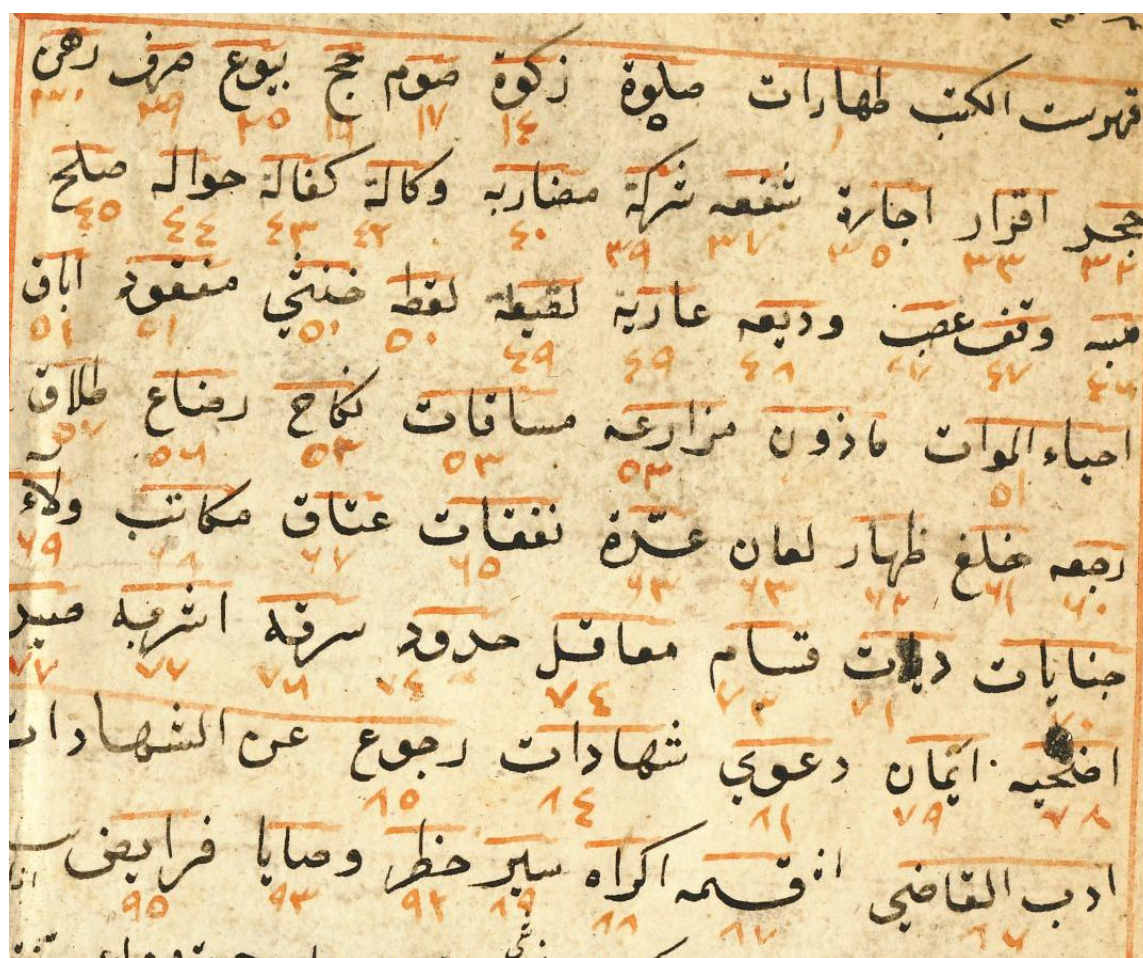 فهرست الكتب طهارات صلوة زكوة صوم حج بيوع صرف رهن
١ ٥ ١٤ ١٧ ١٩ ٢٥ ٢٩ ٣٠
حجر اقرار اجارة شفعه شركة مضاربه وكالة كفالة حواله صلح
٣٢ ٣٣ ٣٥ ٣٧ ٣٩ ٤٠ ٤٢ ٤٣ ٤٤ ٤٥
هبه وقف غصب وديعه عارية لقيطه لقطه خنثي مفقود اباق
٤٦ ٤٧ ٤٧ ٤٨ ٤٩ ٤٩ ٥٠ ٥٠ ٥١ ٥١
احياء الموات ماذون مزارعه مساقات نكاح رضاع طلاق
٥١ ٥٣ ٥٣ ٥٣ ٥٦ ٥٧
رجعه خلع ظهار لعان عدّة نفقات عتاق مكاتب ولاء
٦٠ ٦١ ٦٢ ٦٣ ٦٣ ٦٥ ٦٧ ٦٨ ٦٩
جنايات ديات قسام معاقل حدود سرقه اشربه صيد
٧٠ ٧١ ٧٣ ٧٤ ٧٤ ٧٦ ٧٧ ٧٧
اضحيه ايمان دعوي شهادات رجوع عن الشهادات
٧٨ ٧٩ ٨١ ٨٤ ٨٥
ادب القاضي قسمه اكراه سير حظر وصايا فرايض
٨٦ ٨٧ ٨٨ ٨٩ ٩٢ ٩٣ ٩٥